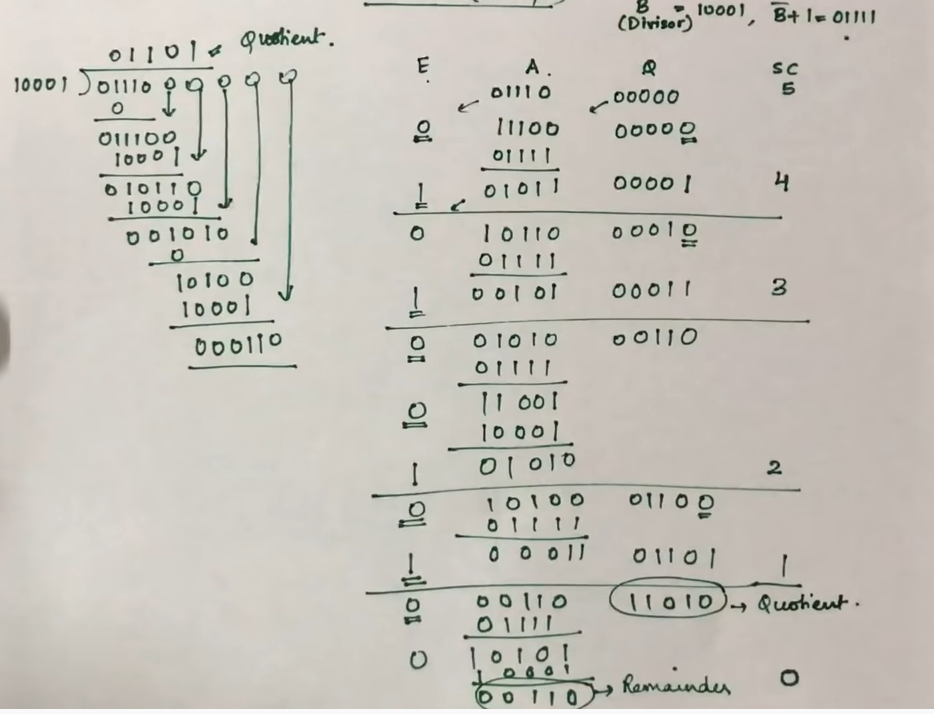 B = 10001, B̅+1 = 01111
(Divisor)
01101 Quotient.
10001 ) 01110 0 0 0 0 0
0
011100
10001
010110
10001
001010
0
10100
10001
000110
E A. Q SC
01110 00000 5
0 11100 00000
01111
1 01011 00001 4
0 10110 00010
01111
1 00101 00011 3
0 01010 00110
01111
0 11001
10001
1 01010 2
0 10100 01100
01111
1 00011 01101 1
0 00110 11010 → Quotient.
01111
0 10101
10001
00110 → Remainder 0